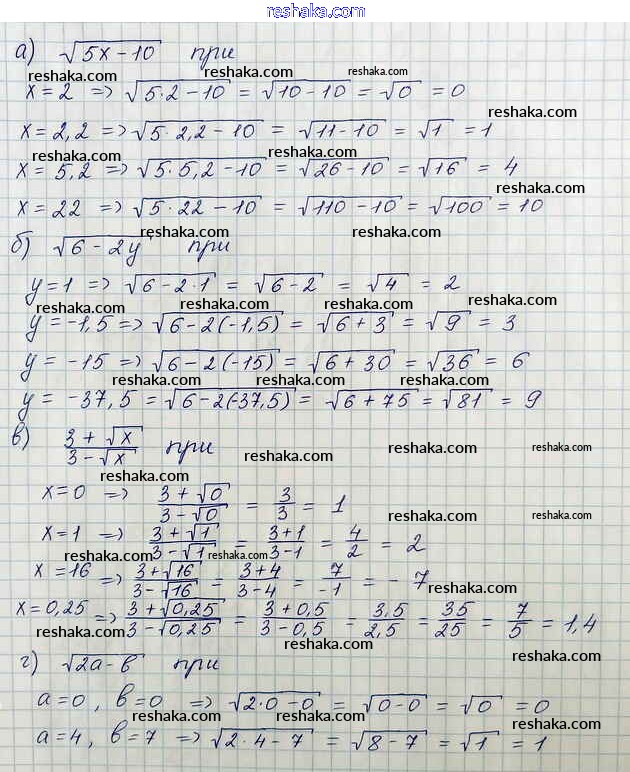 reshaka.com
а) √(5x – 10) при
reshaka.com reshaka.com reshaka.com
x = 2 => √(5·2 – 10) = √(10 – 10) = √0 = 0
reshaka.com reshaka.com reshaka.com
x = 2,2 => √(5·2,2 – 10) = √(11 – 10) = √1 = 1
reshaka.com reshaka.com reshaka.com
x = 5,2 => √(5·5,2 – 10) = √(26 – 10) = √16 = 4
reshaka.com
x = 22 => √(5·22 – 10) = √(110 – 10) = √100 = 10
reshaka.com reshaka.com
б) √(6 – 2y) при
reshaka.com
y = 1 => √(6 – 2·1) = √(6 – 2) = √4 = 2
reshaka.com reshaka.com reshaka.com
y = –1,5 => √(6 – 2(–1,5)) = √(6 + 3) = √9 = 3
reshaka.com reshaka.com
y = –15 => √(6 – 2(–15)) = √(6 + 30) = √36 = 6
reshaka.com reshaka.com reshaka.com
y = –37,5 = √(6 – 2(–37,5)) = √(6 + 75) = √81 = 9
в) (3 + √x)/(3 – √x) при
reshaka.com reshaka.com reshaka.com
reshaka.com
x = 0 => (3 + √0)/(3 – √0) = 3/3 = 1
reshaka.com reshaka.com
x = 1 => (3 + √1)/(3 – √1) = (3+1)/(3–1) = 4/2 = 2
reshaka.com reshaka.com
x = 16 => (3 + √16)/(3 – √16) = (3+4)/(3–4) = 7/–1 = –7
reshaka.com
x = 0,25 => (3 + √0,25)/(3 – √0,25) = (3 + 0,5)/(3 – 0,5) = 3,5/2,5 = 35/25 = 7/5 = 1,4
reshaka.com reshaka.com reshaka.com
г) √(2a – b) при
reshaka.com reshaka.com
a = 0, b = 0 => √(2·0 – 0) = √(0 – 0) = √0 = 0
reshaka.com reshaka.com reshaka.com
a = 4, b = 7 => √(2·4 – 7) = √(8 – 7) = √1 = 1
reshaka.com reshaka.com